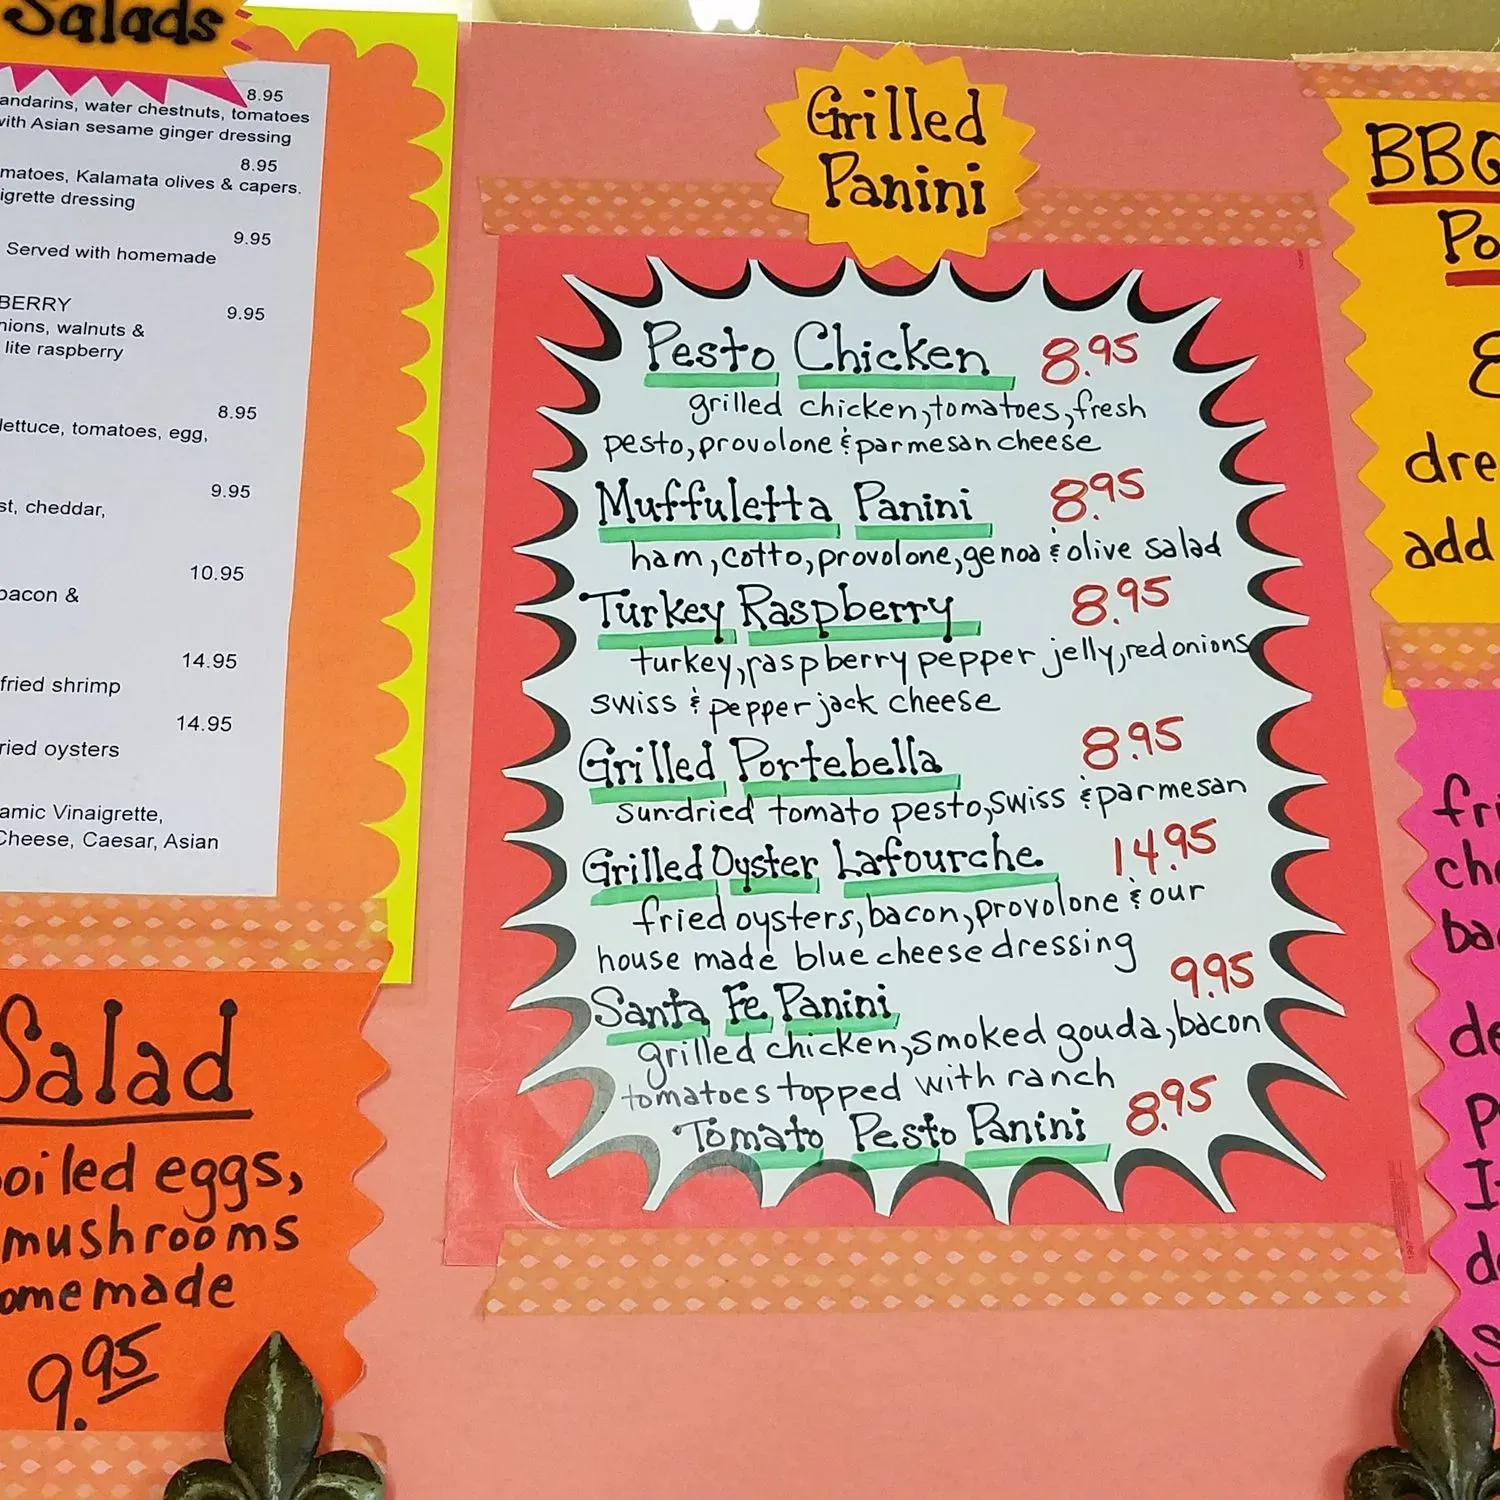 Salads
8.95
water chestnuts, tomatoes
with Asian sesame ginger dressing
8.95
Kalamata olives & capers.
dressing
9.95
Served with homemade
9.95
walnuts &
lite raspberry
8.95
lettuce, tomatoes, egg,
9.95
cheddar,
10.95
bacon &
14.95
fried shrimp
14.95
oysters
Vinaigrette,
Cheese, Caesar, Asian
Salad
eggs,
mushrooms
9.95
Grilled
Panini
Pesto Chicken 8.95
grilled chicken, tomatoes, fresh
pesto, provolone & parmesan cheese
Muffuletta Panini 8.95
ham, cotto, provolone, genoa & olive salad
Turkey Raspberry 8.95
turkey, raspberry pepper jelly, red onions
swiss & pepper jack cheese
Grilled Portebella 8.95
sundried tomato pesto, swiss & parmesan
Grilled Oyster Lafourche 14.95
fried oysters, bacon, provolone & our
house made blue cheese dressing
Santa Fe Panini 9.95
grilled chicken, smoked gouda, bacon
tomatoes topped with ranch
Tomato Pesto Panini 8.95
BBQ
add